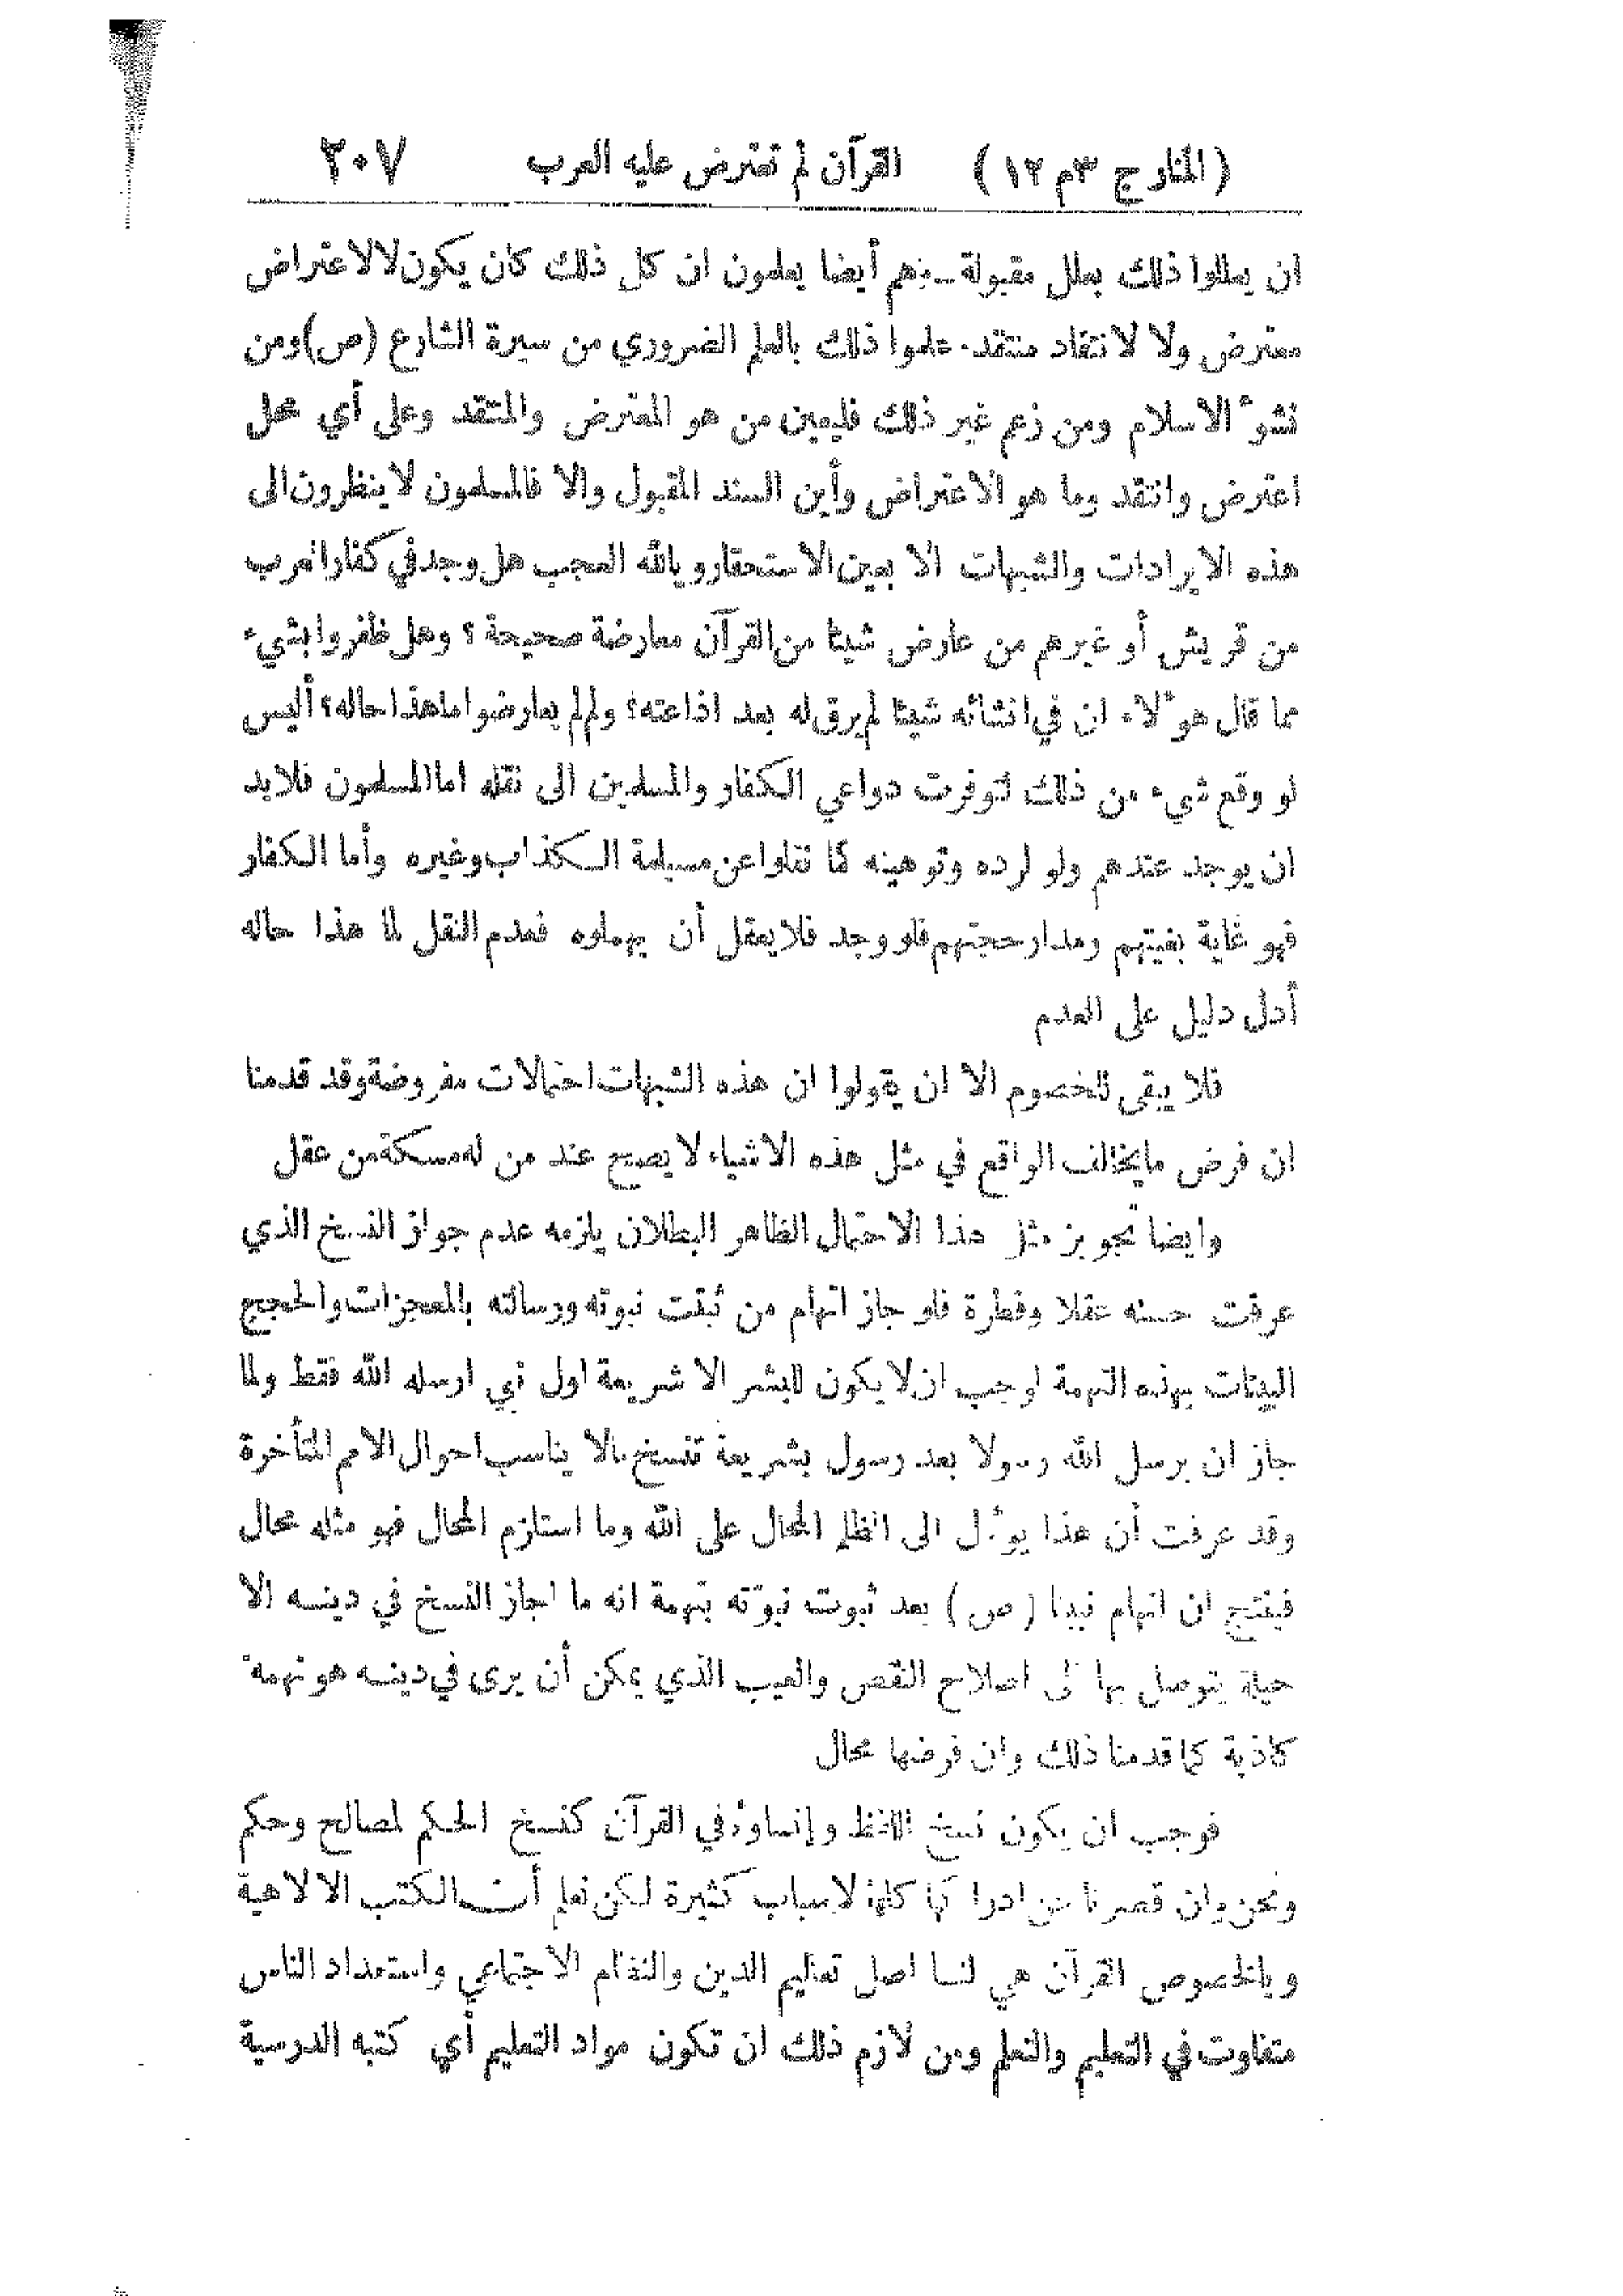 (المنار ج ٣ م ١٢) القرآن لم تعترض عليه العرب ٢٠٧
ان يعللوا ذلك بعلل مقبولة - فهم أيضا يعلمون ان كل ذلك كان يكون لالاعتراض
معترض ولا لانتقاد منتقد. علموا ذلك بالعلم الضروري من سيرة الشارع (ص) ومن
نشوّ الاسلام ومن زعم غير ذلك فليعين من هو المعترض والمنتقد وعلى أي محل
اعترض وانتقد وما هو الاعتراض وأين السند المقبول والا فالمسلمون لا ينظرون الى
هذه الايرادات والشبهات الا بعين الاستحقار ويالله العجب هل وجد في كفار العرب
من قريش أو غيرهم من عارض شيئا من القرآن معارضة صحيحة ؟ وهل ظفروا بشيء
مما قال هؤلاء ان في انشائه شيئا لم يرق له بعد اذاعته؟ ولم لم يعارضوا ما هذا حاله؟ أليس
لو وقع شيء من ذلك لتوفرت دواعي الكفار والمسلمين الى نقله اما المسلمون فلابد
ان يوجد عندهم ولو لرده وتوهينه كما نقلوا عن مسيلمة الكذاب وغيره وأما الكفار
فهو غاية بغيتهم ومدار حجتهم فلو وجد فلا يعقل أن يهملوه فعدم النقل لما هذا حاله
أدل دليل على العدم
فلا يبقى للخصوم الا ان يقولوا ان هذه الشبهات احتمالات مفروضة وقد قدمنا
ان فرض مايخالف الواقع في مثل هذه الاشياء لا يصح عند من له مسكة من عقل
وايضا تجويز مثل هذا الاحتمال الظاهر البطلان يلزمه عدم جواز النسخ الذي
عرفت حسنه عقلا وفطرة فلو جاز اتهام من ثبتت نبوته ورسالته بالمعجزات والحجج
البينات بهذه التهمة لوجب ان لا يكون للبشر الا شريعة اول نبي ارسله الله فقط ولما
جاز ان يرسل الله رسولا بعد رسول بشريعة تنسخ مالا يناسب احوال الامم المتأخرة
وقد عرفت أن هذا يؤل الى الظلم المحال على الله وما استلزم المحال فهو مثله محال
فينتج ان اتهام نبينا (ص) بعد ثبوت نبوّته بتهمة انه ما اجاز النسخ في دينه الا
حيلة يتوصل بها الى اصلاح النقص والعيب الذي يمكن أن يرى في دينه هو تهمة
كاذبة كما قدمنا ذلك وان فرضها محال
فوجب ان يكون نسخ اللفظ وإنساؤه في القرآن كنسخ الحكم لمصالح وحكم
ونحن وان قصرنا عن ادراكها كلها لاسباب كثيرة لكن نعلم أن الكتب الالاهية
وبالخصوص القرآن هي لنا اصل تعليم الدين والنظام الاجتماعي واستعداد الناس
متفاوت في التعليم والتعلم ومن لازم ذلك ان تكون مواد التعليم أي كتبه الدرسية